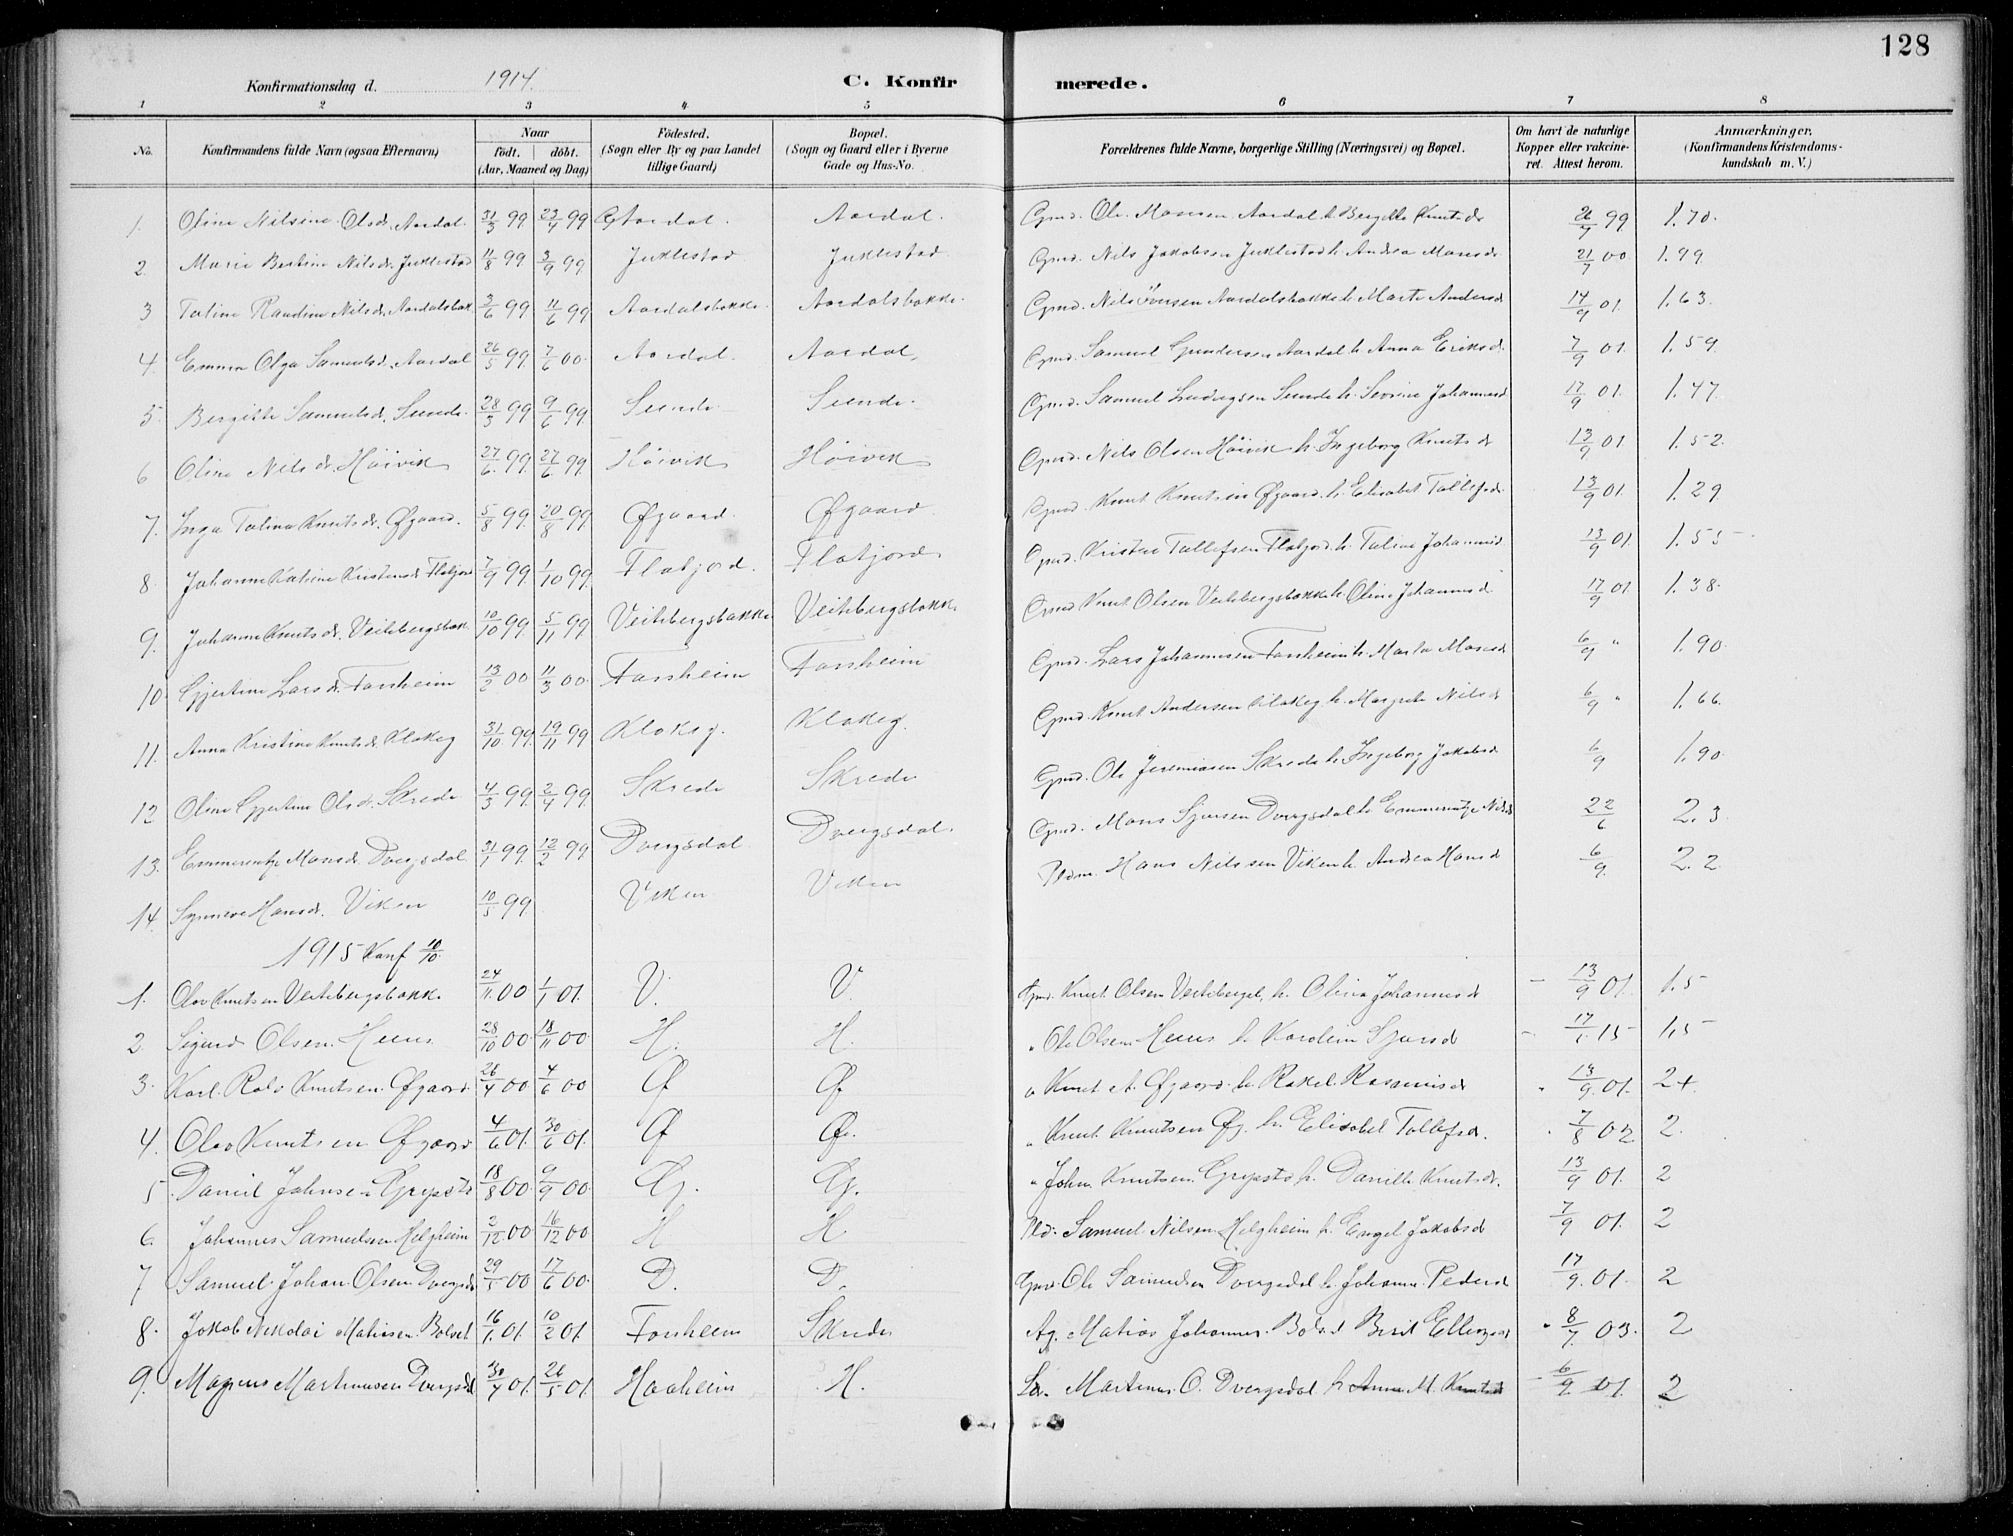 128
Konfirmationsdag d. 1914.
C. Konfirmerede.
1 2 3 4 5 6 7 8
No. Konfirmandens fulde Navn (ogsaa Efternavn) Naar født. døbt. (Aar, Maaned og Dag) Fødested. (Sogn eller By og paa Landet tillige Gaard) Bopæl. (Sogn og Gaard eller i Byerne Gade og Hus-No. Forældrenes fulde Navne, borgerlige Stilling (Næringsvei) og Bopæl. Om havt de naturlige Kopper eller vakcineret. Attest herom. Anmærkninger. (Konfirmandens Kristendomskundskab m. V.)
1. Oline Nilsine Olsdr. Aardal 31/3 99 23/4 99 Aardal. Aardal. Gmd. Ole Monsen Aardal h. Bergitte Knutsdr 26/7 99 1.70.
2. Marie Bertine Nilsdr. Juklestad 11/8 99 3/9 99 Juklestad Juklestad Gmd. Nils Jakobsen Juklestad h. Andrea Monsdr 21/7 00 1.99
3 Taline Raudine Nilsdr. Aardalsbak. 3/6 99 11/6 99 Aardalsbakke. Aardalsbakke. Gmd. Nils Iversen Aardalsbakke h. Marte Andersd 14/9 01. 1.63.
4. Emma Olga Samuelsdr. Aardal 26/5 99 7/6 00. Aardal. Aardal, Gmd. Samuel Gundersen Aardal h. Anna Eriksd. 7/9 01. 1.59
5. Bergitte Samuelsdr. Sunde. 28/3 99 9/6 99 Sunde Sunde. Gmd. Samuel Ludvigsen Sunde h. Severine Johannesd 17/9 01. 1.47.
6 Oline Nilsdr. Høivik 27/6. 99 27/6 99 Høivik Høivik Gmd. Nils Olsen Høivik h. Ingeborg Knutsdr 13/9 01 1.52.
7. Inga Taline Knutsdr. Øfgaard. 5/8 99 20/8 99 Øfgaard. Øfgaard Gmd. Knut Knutsen Øfgaard. h. Elisabet Tollefsdr. 13/9 01. 1.29
8. Johanne Katrine Kristensdr Flatjord 7/9 99 1/10 99 Flatjord. Flatjord Gmd. Kristen Tollefsen Flatjord. h. Taline Johannesd. 13/9 01 1.55
9. Johanne Knutsdr. Veitebergsbak. 10/10 99 5/11 99 Veitebergsbakke Veitebergsbakk. Gmd Knut Olsen Veitebergsbakke h. Oline Johannesd 17/9 01 1.38.
10. Gjertine Larsdr. Farsheim 13/2 00 11/3 00 Farsheim Farsheim Gmd. Lars Johannesen Farsheim h. Marta Monsd 6/9 " 1.90.
11. Anna Kristine Knutsdr. Klakeg 31/10. 99 19/11 99 Klakeg. Klakeg. Gmd. Knut Andersen Klakeg h. Margrete Nilsd 6/9 " 1.66.
12 Oline Gjertine Olsdr. Skrede 4/3 99 2/4 99 Skrede Skrede Gmd. Ole Jeremiasen Skrede h. Ingeborg Jakobsd 6/9 1.90.
13. Emmerentze Monsdr. Dvergsdal 31/1 99 12/2 99 Dvergsdal Dvergsdal. Gmd. Mons Sjursen Dvergsdal h. Emmerentze Nilsd 22/6 2.3
14. Synneve Hansdr. Viken 10/5 99 Viken Viken Pldm. Hans Nilssen Viken h. Andrea Hansd 6/9. 2.2
1915 Konf 10/10.
1. Olav Knutsen Veitebergsbakk. 24/11. 00 1/1 01. V. V. Gmd. Knut Olsen Veitebergsb. h. Oline Johannesd - 13/9 01 1.5
2. Sigurd Olsen Heens 28/10 00 18/11 00 H. H. " Ole Olsen Heens h. Kardem Sjursd - 17/ 15 1,5
3. Karl Rolv Knutsen Øfgaard. 28/4 00 4/6 00 Ø Ø. " Knut A. Øfgaard. h. Rakel Rasmusd " 13/9 01. 2+
4. Olav Knutsen Øfgaard 4/6 01. 30/6 01. Ø Ø. " Knut Knutsen Øfg. h. Elisabet Tollefsd. " 7/8 02 2.
5. Daniel Johnsen Grepstd 18/8 00 9/9 00. G. G. " John Knutsen Grepstd h. Danille Knutsd. 13/9 01. 2
6. Johannes Samuelsen Helgheim 2/12 00 16/12 00 H H Pld. Samuel Nilsen Helgheim h. Engel Jakobsd 7/9 01. 2
7 Samuel Johan Olsen Dvergsd 29/5 00 17/6 00. D. D. Gmd. Ole Samuelsen Dvergsdal h. Johanne Pedersd 17/9. 01. 2
8. Jakob Nikolai Matiasen Bolset 16/1. 01. 10/2 01. Farsheim Skrede Ag. Matias Johannes. Bolset Berit Ellingsd " 8/7 03. 2
9. Magnus Martinusen Dvergsdl 30/4 01. 26/5 01. Haaheim H. La. Martinus O. Dvergsdal h Anna M. Knutsd - 6/9 01. 2